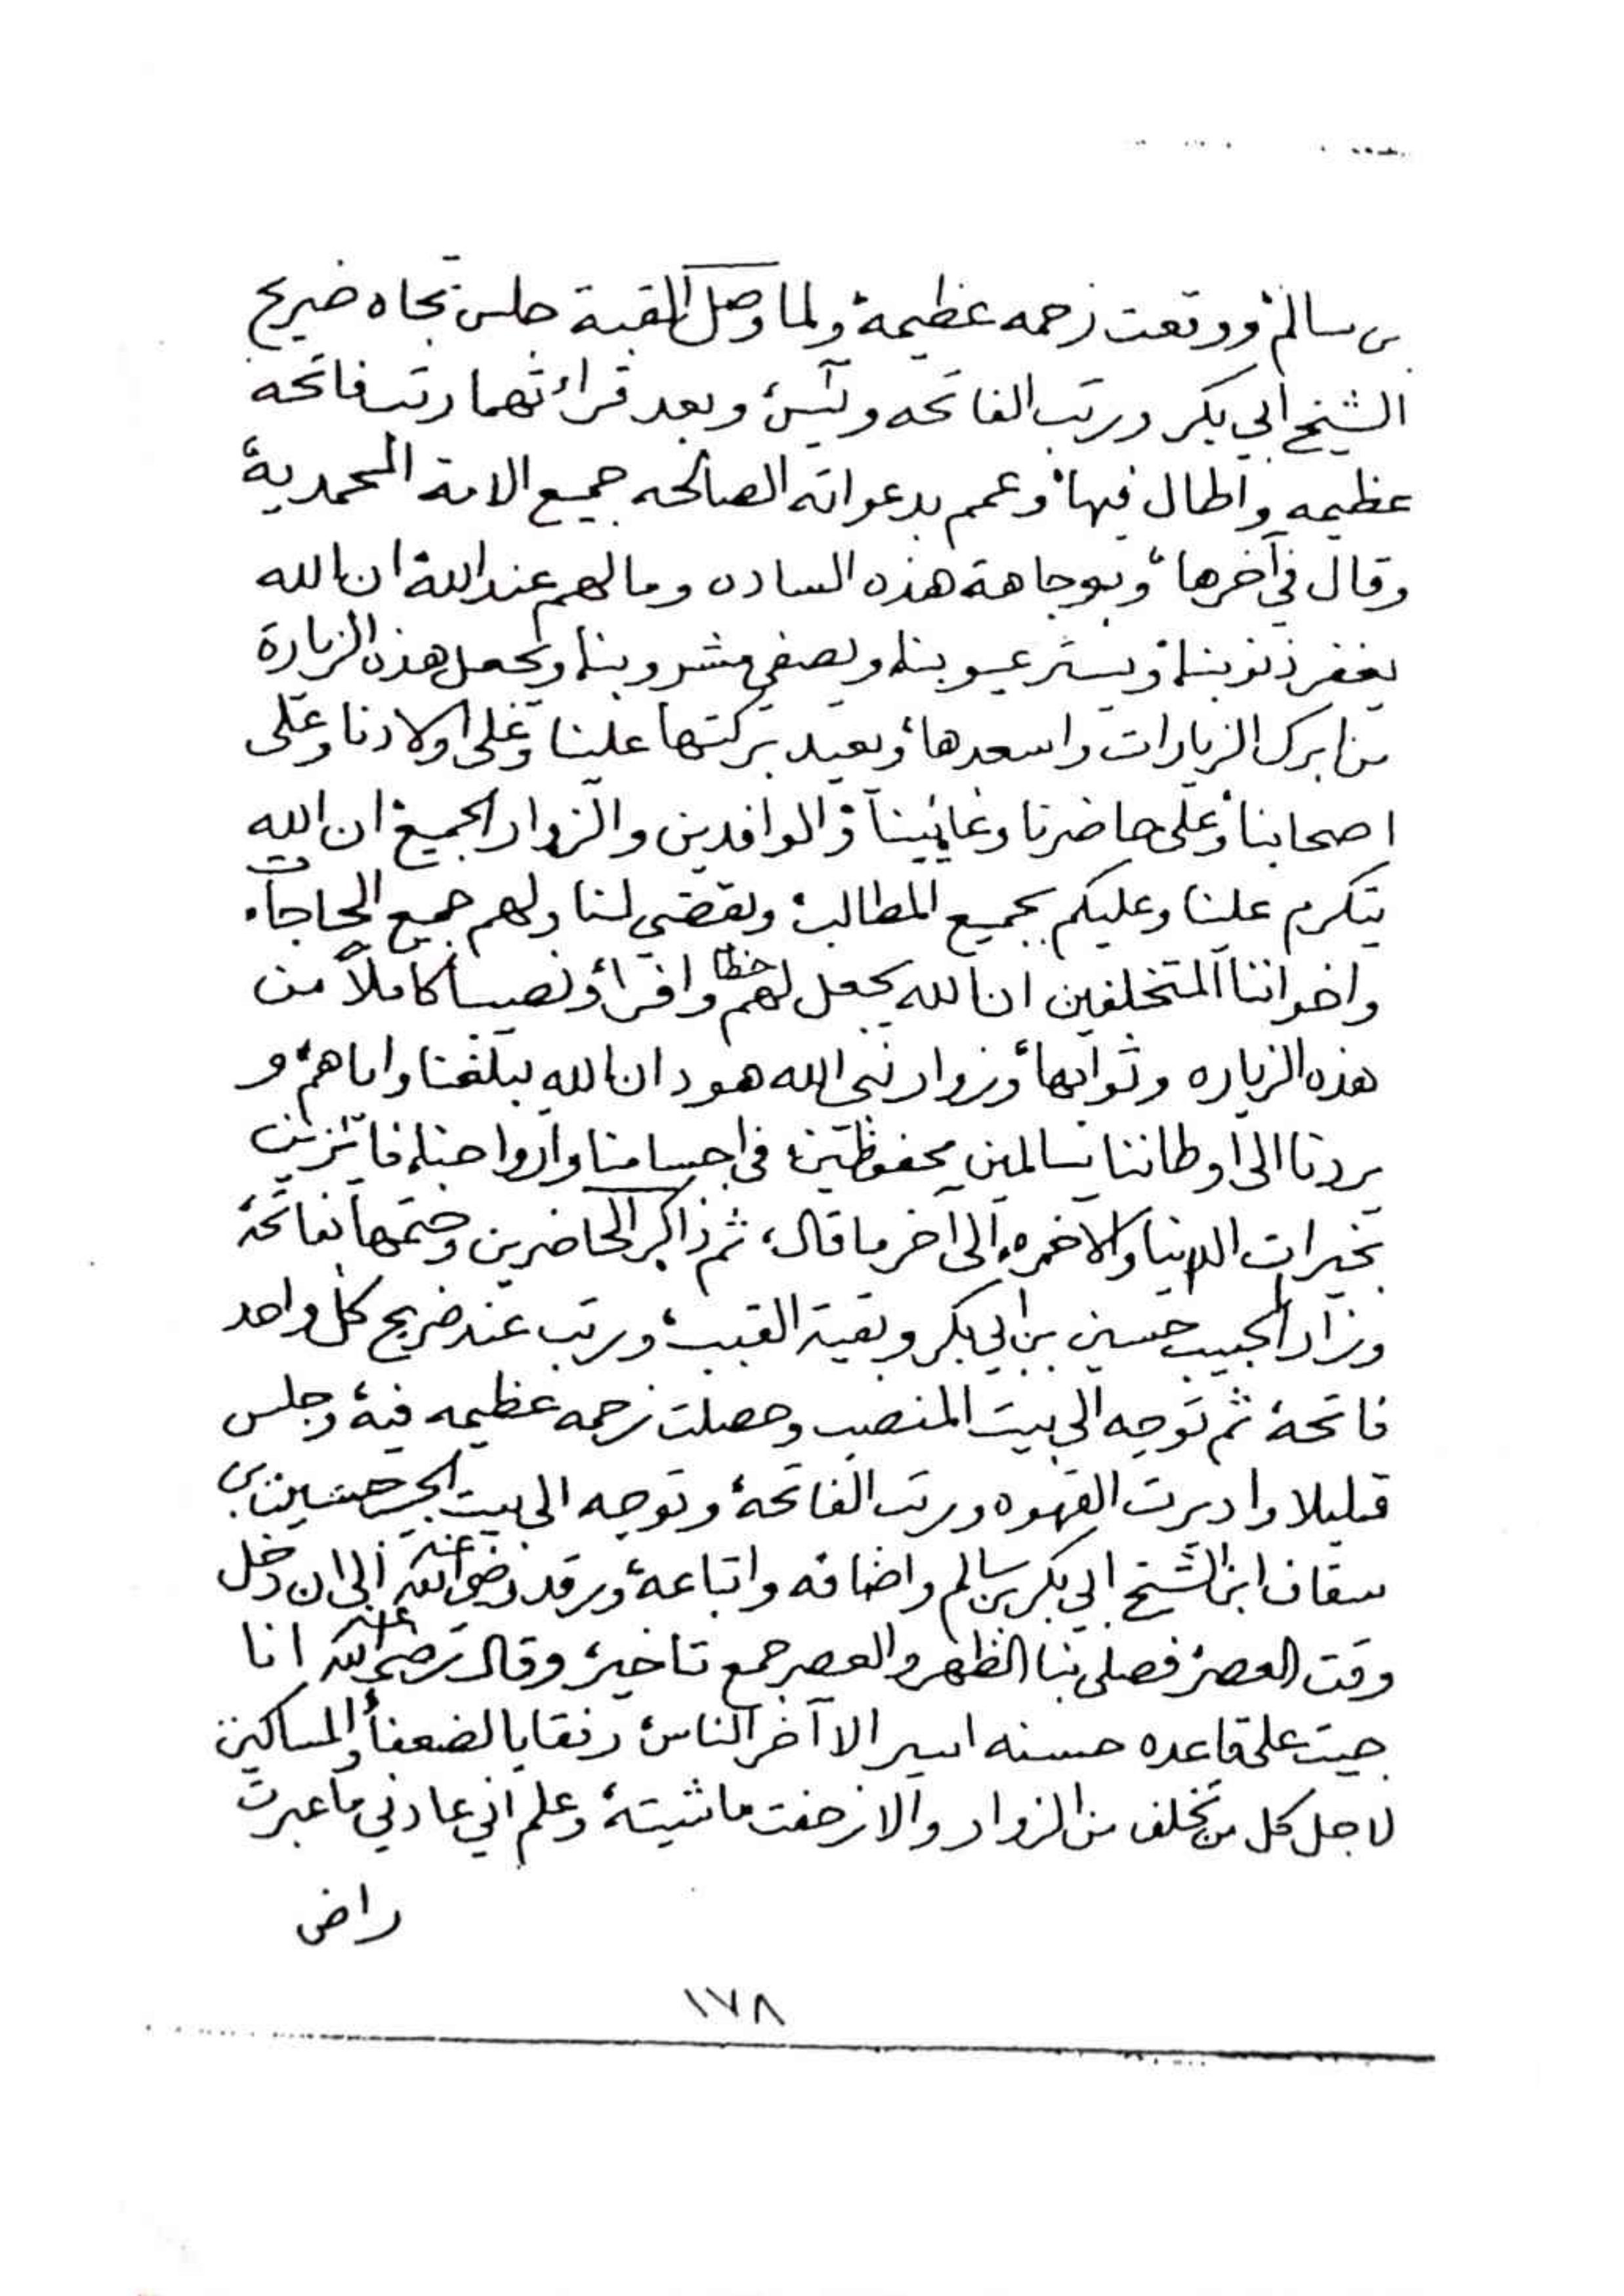 بن سالم، ووقعت زحمه عظيمة، ولما وصل القبة جلس تجاه ضريح
الشيخ ابي بكر ورتب الفاتحه ويٓس، وبعد قرائتهما رتب فاتحه
عظيمه واطال فيها، وعمم بدعواته الصالحه جميع الامة المحمدية،
وقال في آخرها، وبوجاهة هذه الساده ومالهم عند الله، ان الله
يغفر ذنوبنا، ويستر عيوبنا، ويصفي مشروبنا، ويجعل هذه الزيارة
من ابرك الزيارات واسعدها، ويعيد بركتها علينا وعلى اولادنا وعلى
اصحابنا، وعلى حاضرنا وغائبينا، والوافدين والزوار الجميع، ان الله
يتكرم علينا وعليكم بجميع المطالب، ويقضي لنا ولهم جميع الحاجات،
واخواننا المتخلفين ان الله يجعل لهم حظا وافرا، ونصيبا كاملاً من
هذه الزياره وثوابها، وزوار نبي الله هود ان الله يبلغنا واياهم، و
يردنا الى اوطاننا سالمين محفوظين، في اجسامنا وارواحنا، فائزين
بخيرات الدنيا والاخره، الى آخر ما قال، ثم ذاكر الحاضرين وختمها بفاتحة،
وزار الحبيب حسين بن ابي بكر وبقية القبب، ورتب عند ضريح كل واحد
فاتحة، ثم توجه الى بيت المنصب وحصلت زحمه عظيمه فيه، وجلس
قليلا واديرت القهوه ورتب الفاتحة، وتوجه الى بيت الحبيب حسين بن
سقاف ابن الشيخ ابي بكر بن سالم واضافه واتباعه، ورقد رضي الله عنه الى ان دخل
وقت العصر، فصلى بنا الظهر والعصر جمع تاخير، وقال رضي الله عنه انا
جيت على قاعده حسنه اسير الا آخر الناس، رفقا بالضعفاء والمساكين،
لاجل كل من تخلف من الزوار والا زحفت ماشيته، وعلم اني عادني ما عبرت
راض
١٧٨